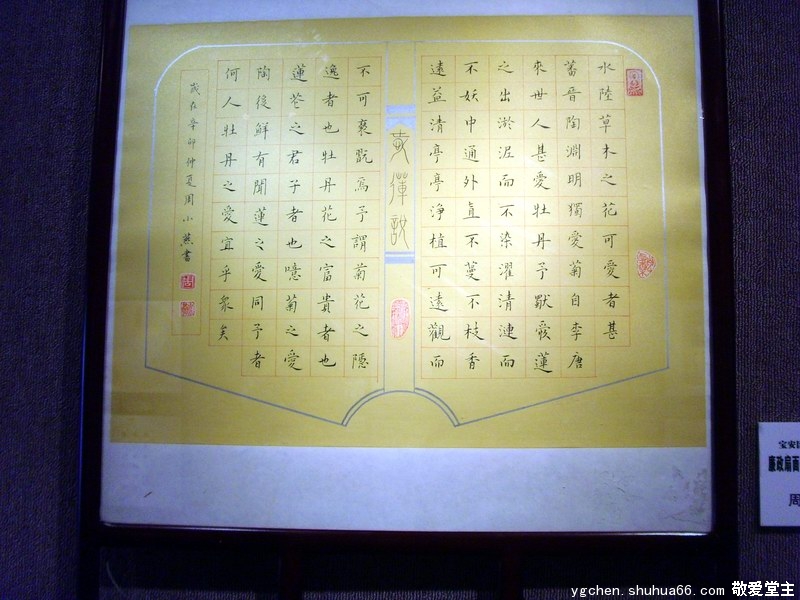 水陸草木之花可愛者甚
蕃晉陶淵明獨愛菊自李唐
來世人甚愛牡丹予獨愛蓮
之出淤泥而不染濯清漣而
不妖中通外直不蔓不枝香
遠益清亭亭淨植可遠觀而
愛蓮說
不可褻翫焉予謂菊花之隱
逸者也牡丹花之富貴者也
蓮花之君子者也噫菊之愛
陶後鮮有聞蓮之愛同予者
何人牡丹之愛宜乎眾矣
歲在辛卯仲夏周小燕書
宝安
廉政扇面
周
ygchen.shuhua66.com 敬爱堂主